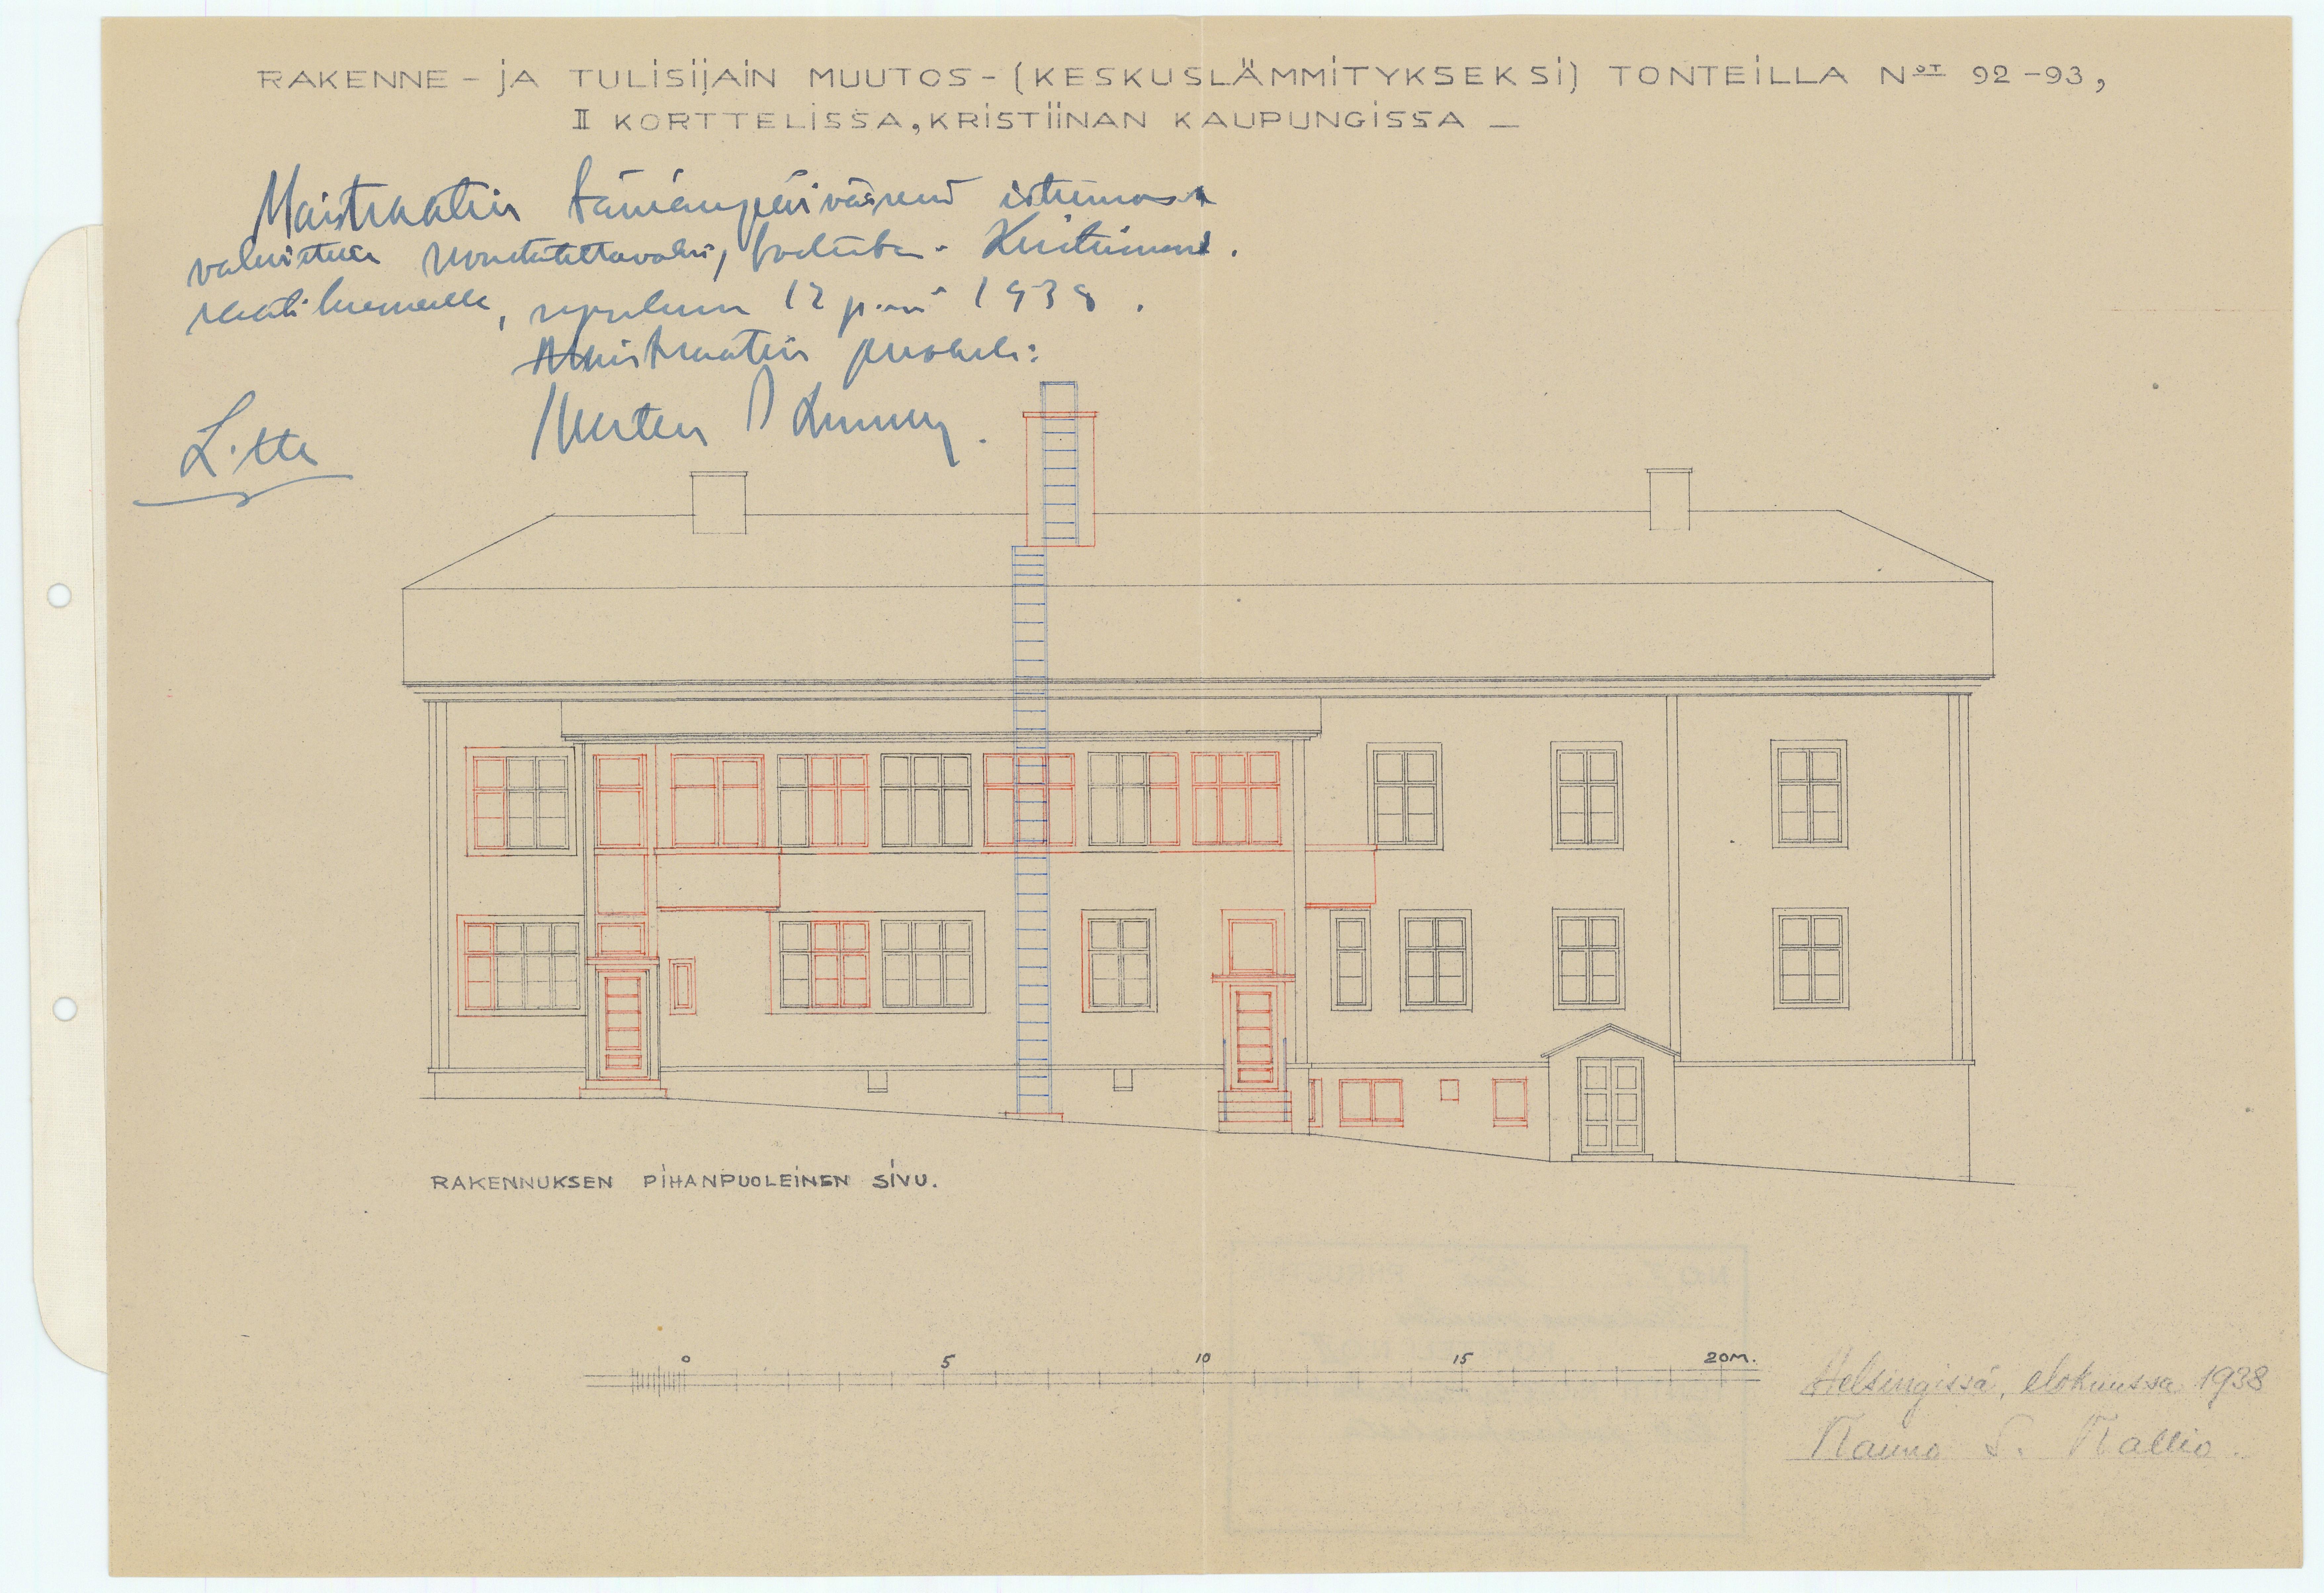 RAKENNE - JA TULISIJAIN MUUTOS - (KESKUSLÄMMITYKSEKSI) TONTEILLA Not 92 - 93,
II KORTTELISSA, KRISTIINAN KAUPUNGISSA —
Maistraatin tämänpäiväisessä istunnossa
vahvistettu noudatettavaksi,
raatihuoneella, syyskuun 12 p:nä 1938.
Maistraatin puolesta:
RAKENNUKSEN PIHANPUOLEINEN SIVU.
0 5 10 15 20M.
Helsingissä, elokuussa 1938
Kauno S. Kallio.